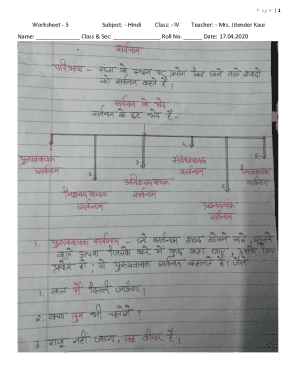 Page | 1
Worksheet - 5 Subject: - Hindi Class: - IV Teacher: - Mrs. Jitender Kaur
Name: ________________ Class & Sec ____________ Roll No. ______ Date: 17.04.2020
सर्वनाम
परिभाषा - संज्ञा के स्थान पर प्रयोग किए जाने वाले शब्दों
को सर्वनाम कहते हैं।
सर्वनाम के भेद
सर्वनाम के छह भेद हैं -
1. 2. 3. 4. 5. 6.
पुरुषवाचक सर्वनाम
निश्चयवाचक सर्वनाम
अनिश्चयवाचक सर्वनाम
संबंधवाचक सर्वनाम
प्रश्नवाचक सर्वनाम
निजवाचक सर्वनाम
1. पुरुषवाचक सर्वनाम - जो सर्वनाम शब्द बोलने वाले, सुनने
वाले अथवा जिसके बारे में कुछ कहा जाए, उसके लिए
प्रयुक्त हों, वे पुरुषवाचक सर्वनाम कहलाते हैं। जैसे
1. कल मैं दिल्ली जाऊँगा।
2. क्या तुम भी चलोगे?
3. राजू नहीं जाएगा, वह बीमार है।